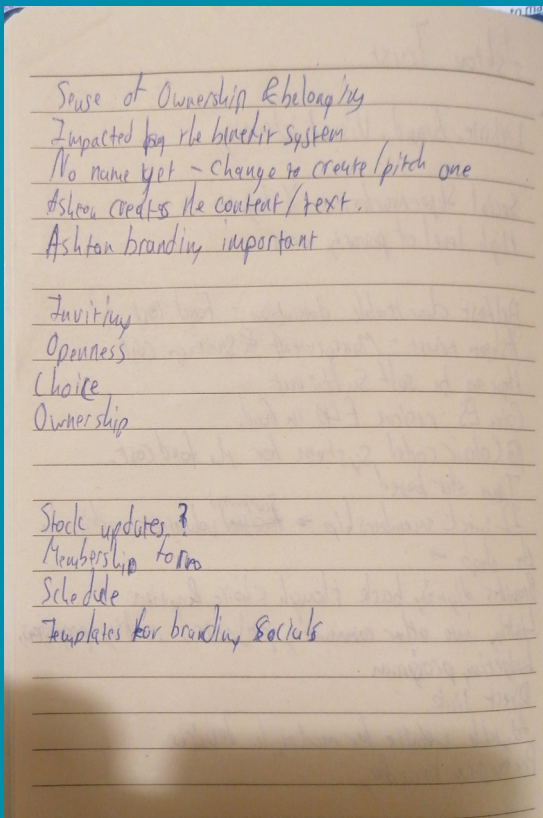 Sense of Ownership & belonging
Impacted by the benefit System
No name yet - change to create/pitch one
Ashton credits the content/text.
Ashton branding important
Inviting
Openness
Choice
Ownership
Stock updates ?
Membership
Schedule
Templates for branding Socials